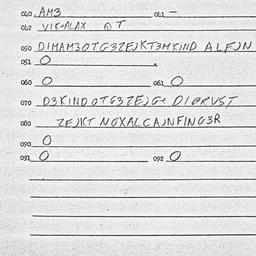 040 AM3 041 -
042 VIK-ALAX @ T
050 DIMAM3OTG3ZEJKT3MKIND ALFJN
051 O
060 O 061 O
070 D3KINDOTG3ZEJG1 DIORVST
080 ZEJKT NOXALCAJNFING3R
090 O
091 O 092 O